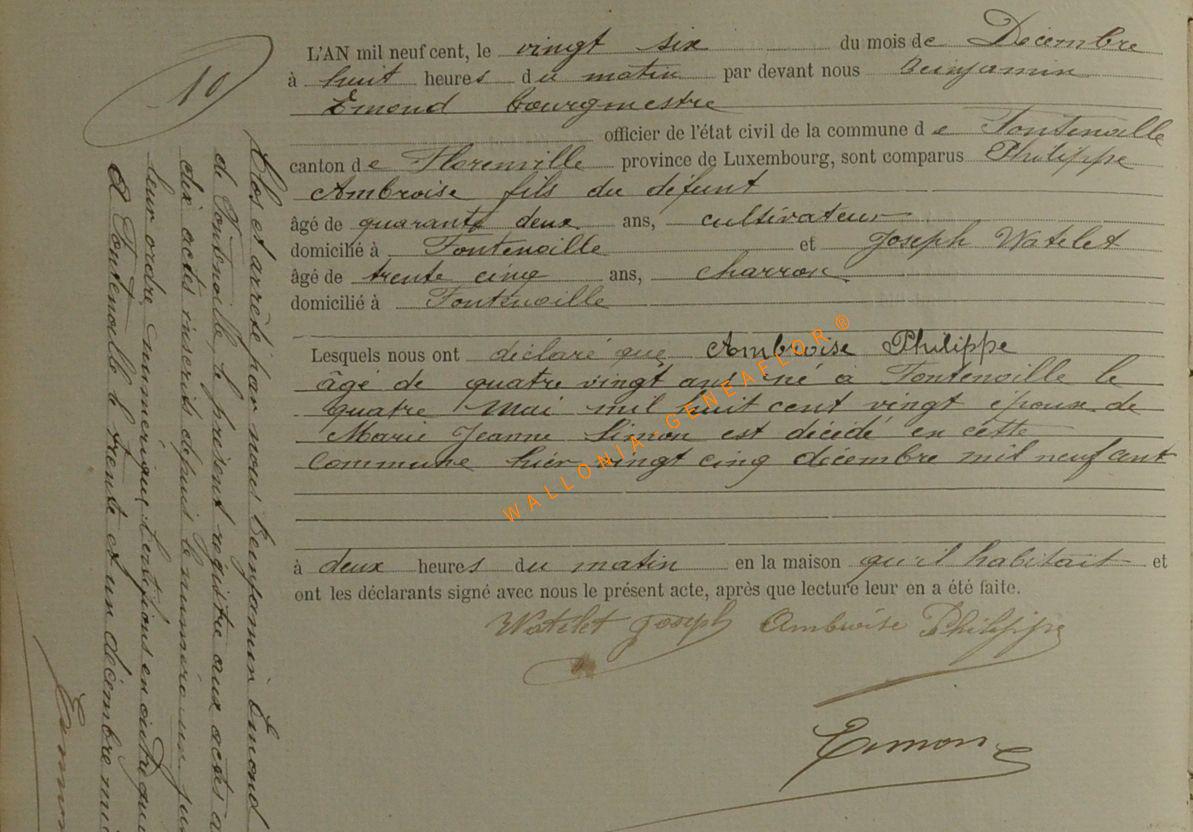 10
L'AN mil neuf cent, le vingt six du mois de Décembre
à huit heures du matin par devant nous Benjamin
Emond bourgmestre
officier de l'état civil de la commune de Fontenoille
canton de Florenville province de Luxembourg, sont comparus Philippe
Ambroise fils du défunt
âgé de quarante deux ans, cultivateur
domicilié à Fontenoille et Joseph Watelet
âgé de trente cinq ans, charron
domicilié à Fontenoille
Lesquels nous ont déclaré que Ambroise Philippe
âgé de quatre vingt ans né à Fontenoille le
quatre Mai mil huit cent vingt époux de
Marie Jeanne Simon est décédé en cette
commune hier vingt cinq décembre mil neuf cent
à deux heures du matin en la maison qu'il habitait et
ont les déclarants signé avec nous le présent acte, après que lecture leur en a été faite.
Watelet Joseph Ambroise Philippe
Emond
Clos et arrêté par nous Benjamin Emond
de Fontenoille le présent registre aux actes
dix actes inscrits depuis le numéro un
leur ordre numérique. Certifions en outre que
A Fontenoille le trente et un décembre mil
WALLONIA-GENEAFLOR®